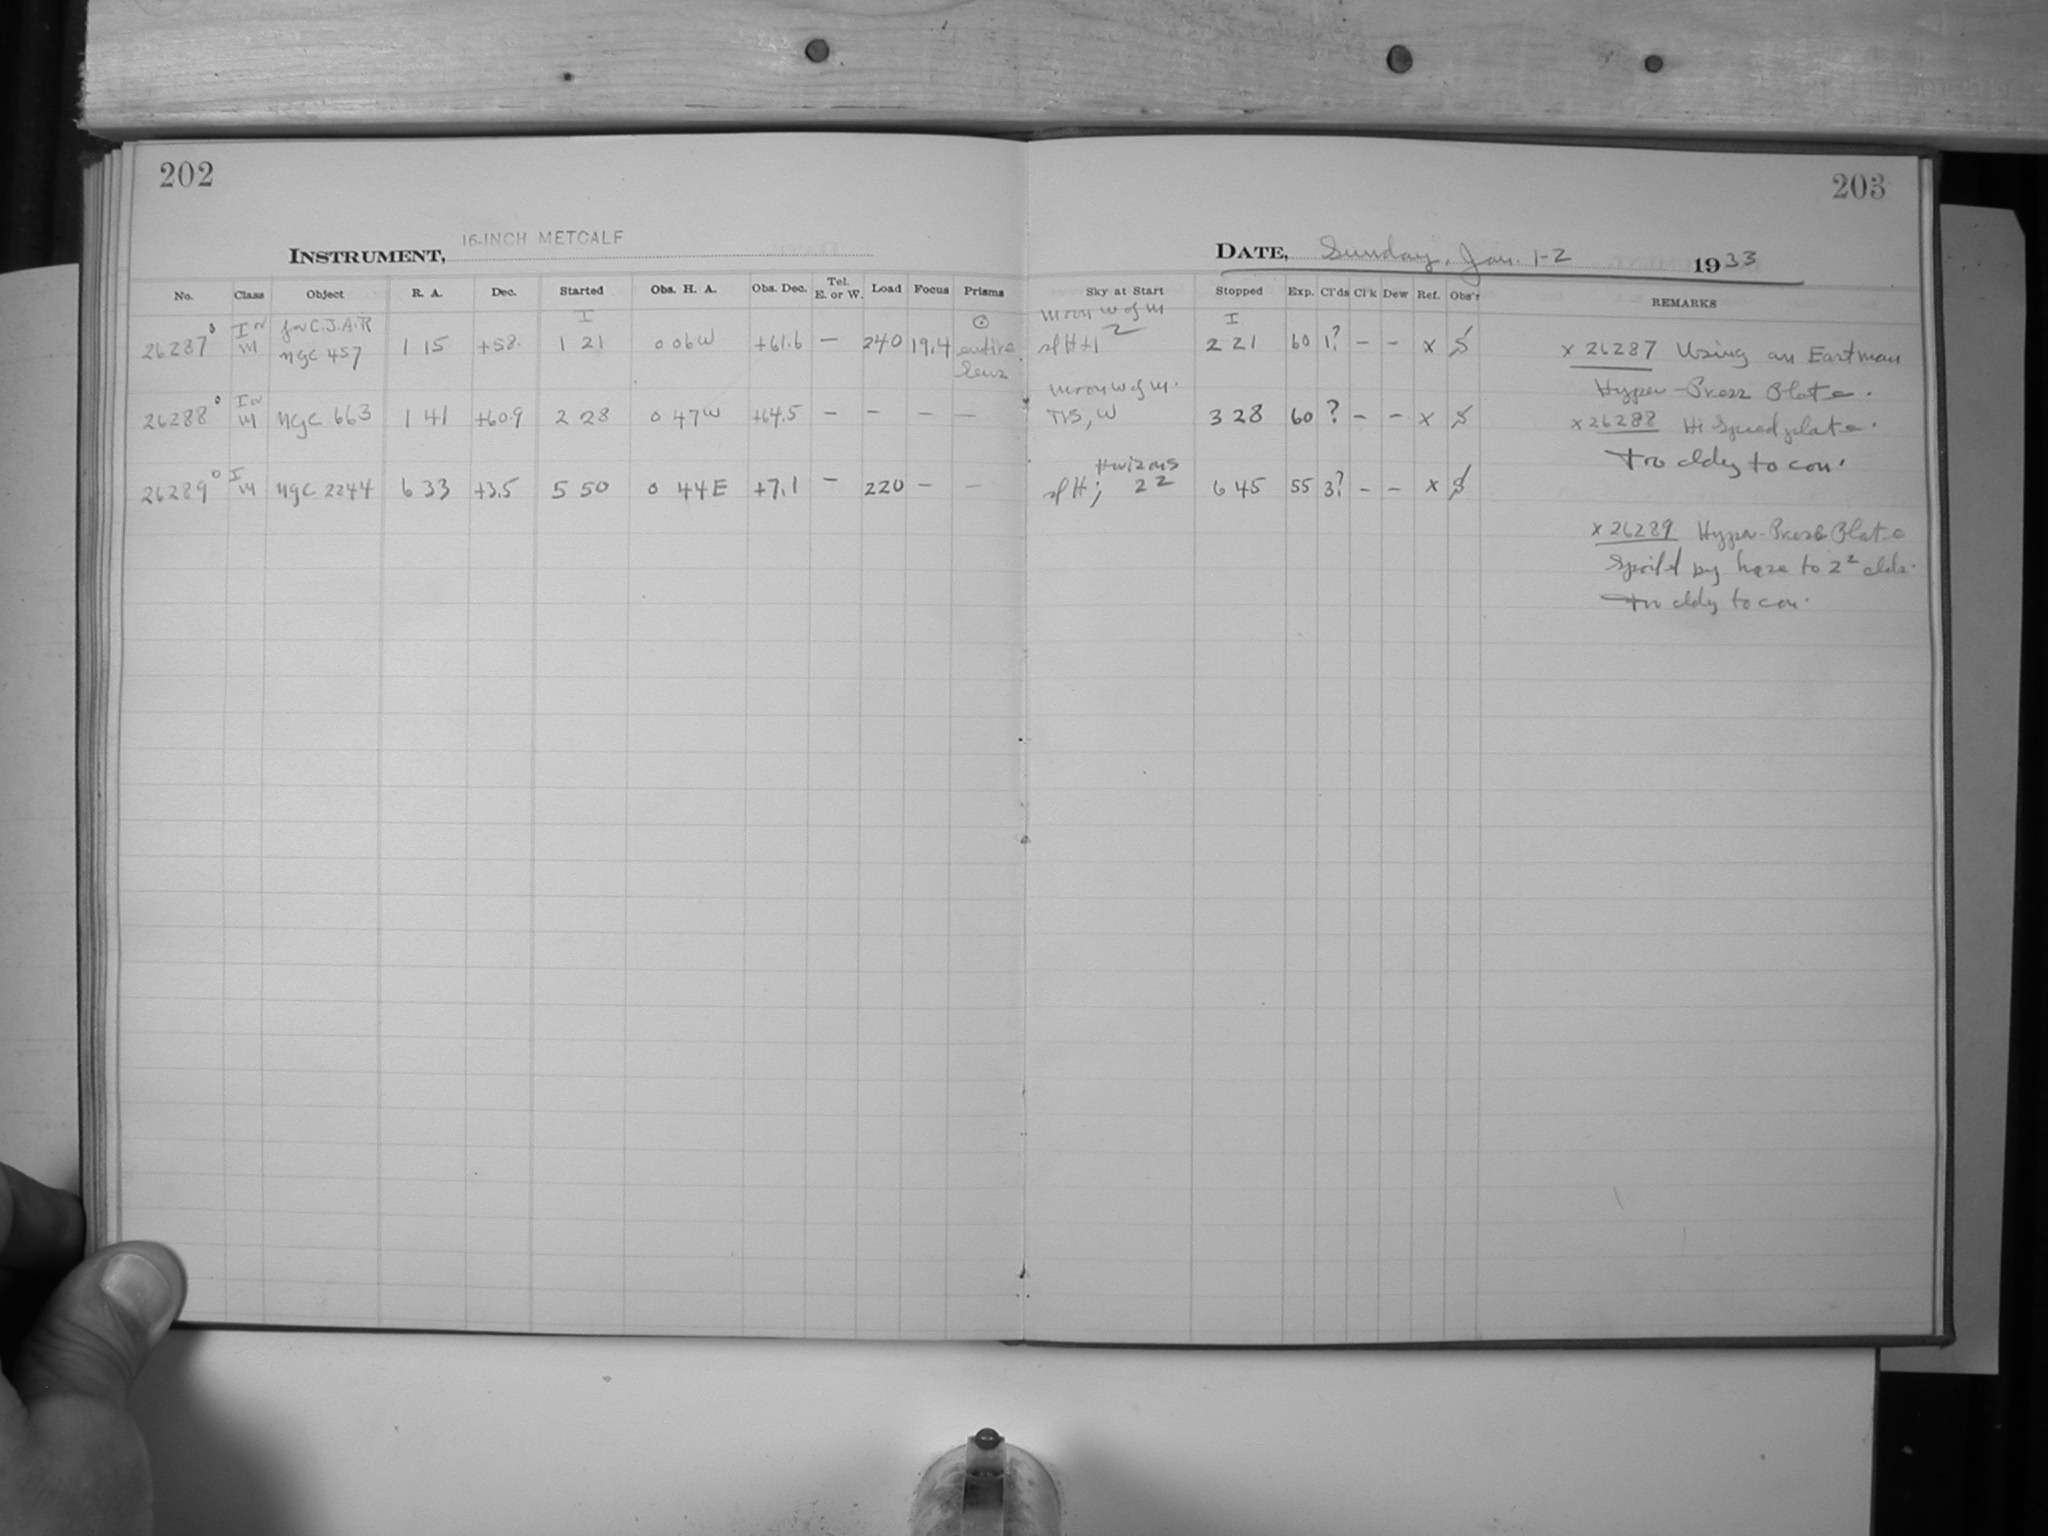 202
203
INSTRUMENT, 16-INCH METCALF
DATE, Sunday, Jan. 1-2 1933
No. Class Object R. A. Dec. Started Obs. H. A. Obs. Dec. Tel. E. or W. Load Focus Prisms Sky at Start Stopped Exp. Cl'ds Cl'k Dew Ref. Obs'r REMARKS
for C.J.A.R I ⊙ moon w of m I
26287 NGC 457 1 15 +58. 1 21 0 06W +61.6 — 240 19.4 entire lens 2 21 60 1? – – x S
x 26287 Using an Eastman
Hyper-Press Plate.
moon w of m.
26288 NGC 663 1 41 +60.9 2 28 0 47W +64.5 – – – — 3 28 60 ? – – x S
x 26288 Hi Speed plate.
Too cldy to con.
Horizons
26289 NGC 2244 6 33 +3.5 5 50 0 44E +7.1 – 220 – – 2² 6 45 55 3? – – x S
x 26289 Hyper-Press Plate
Spoiled by haze to 2² clds.
Too cldy to con.